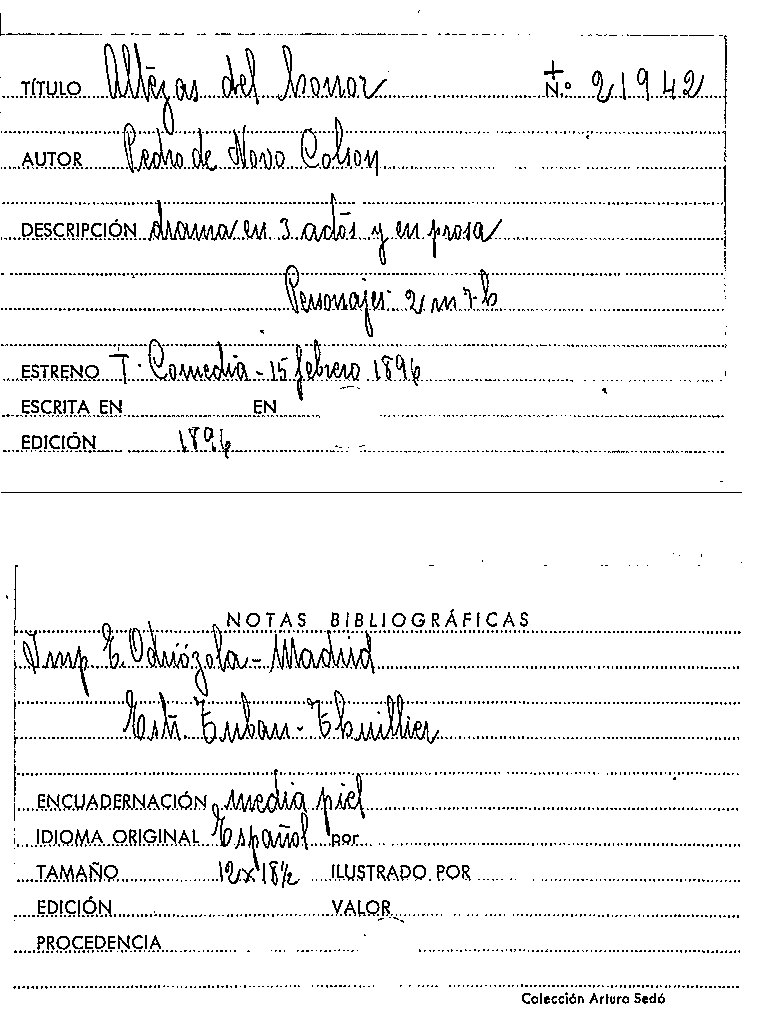 TÍTULO Altezas del honor N.º 21942
AUTOR Pedro de Novo Colson
DESCRIPCIÓN drama en 3 actos y en prosa
Personajes: 2 m 7 h
ESTRENO T. Comedia - 15 febrero 1896
ESCRITA EN EN
EDICIÓN 1896
NOTAS BIBLIOGRÁFICAS
Imp E. Odriózola - Madrid
Estr. - Thuillier
ENCUADERNACIÓN media piel
IDIOMA ORIGINAL Español por
TAMAÑO 12x18½ ILUSTRADO POR
EDICIÓN VALOR
PROCEDENCIA
Colección Arturo Sedó